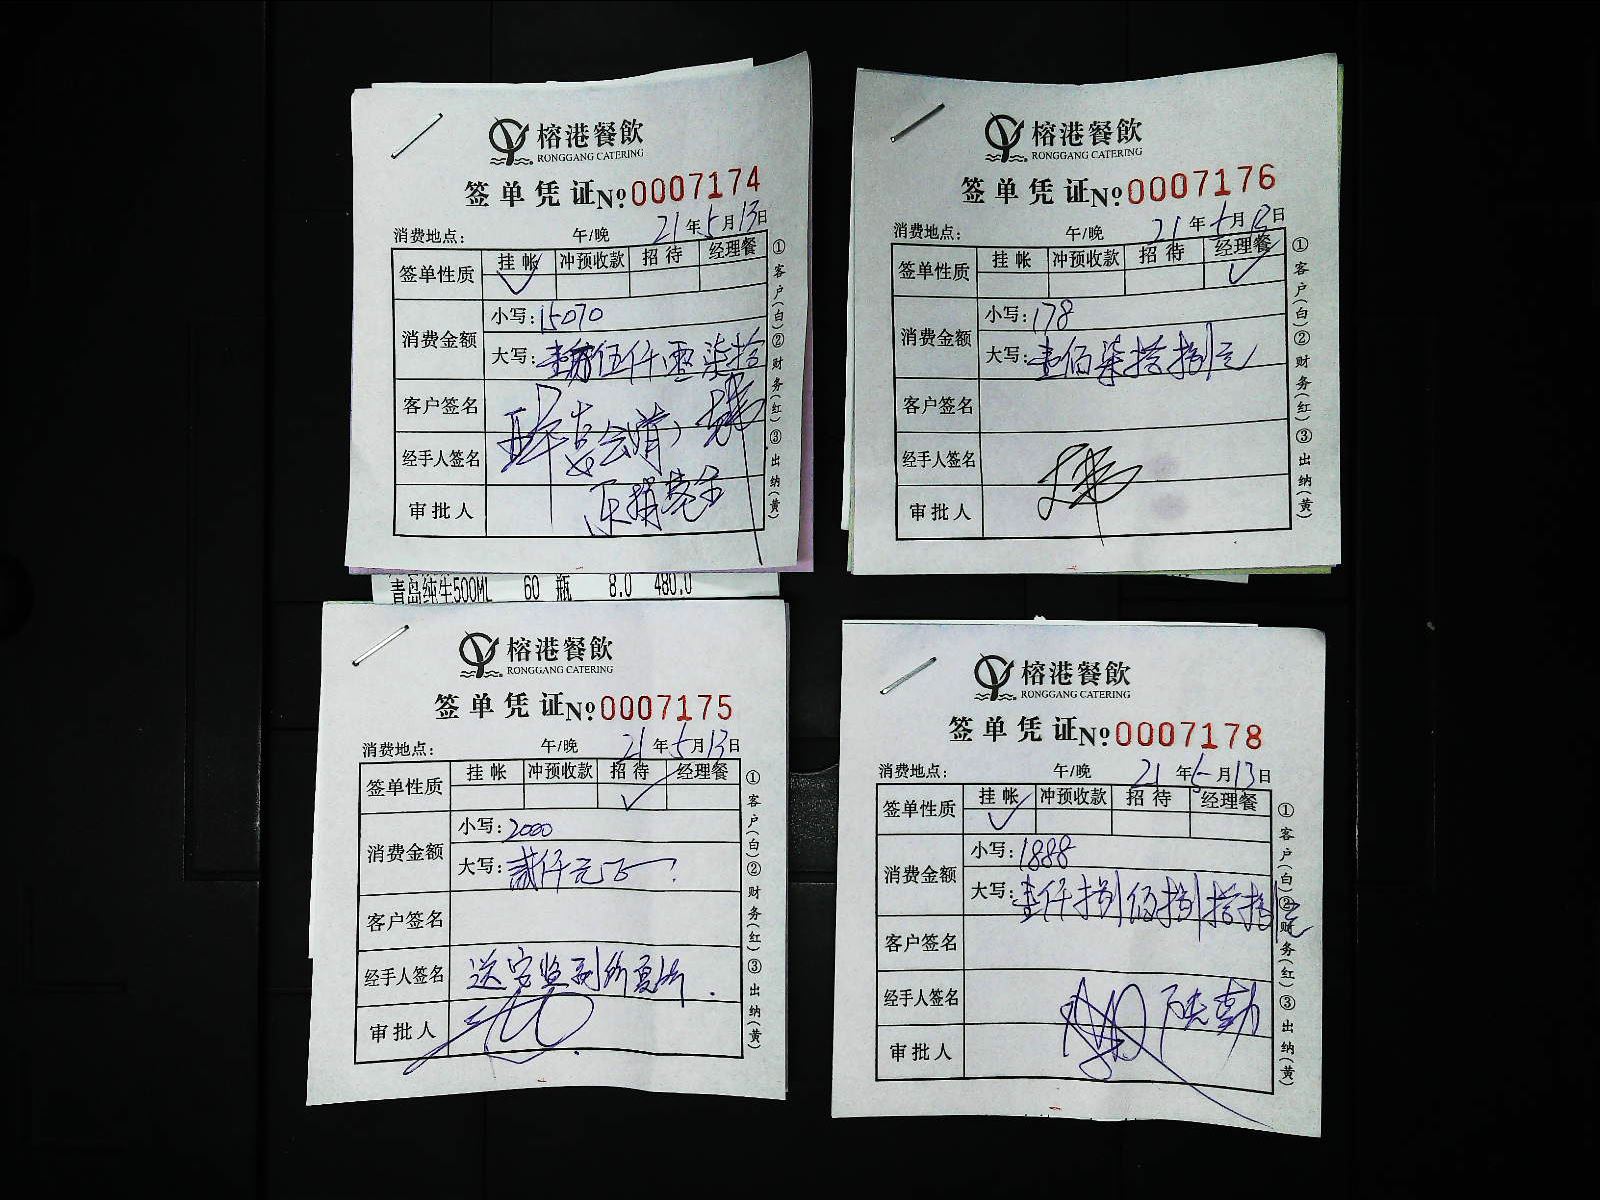 榕港餐飲
RONGGANG CATERING
签单凭证№0007174
消费地点: 午/晚 21年5月13日
签单性质 挂帐 冲预收款 招待 经理餐
✓
消费金额
小写:15070
大写:壹万伍仟零柒拾
客户签名
经手人签名
审批人
①客户(白)②财务(红)③出纳(黄)
榕港餐飲
RONGGANG CATERING
签单凭证№0007176
消费地点: 午/晚 21年5月13日
签单性质 挂帐 冲预收款 招待 经理餐
✓
消费金额
小写:178
大写:壹佰柒拾捌元
客户签名
经手人签名
审批人
①客户(白)②财务(红)③出纳(黄)
青岛纯生500ML 60 瓶 8.0 480.0
榕港餐飲
RONGGANG CATERING
签单凭证№0007175
消费地点: 午/晚 21年5月13日
签单性质 挂帐 冲预收款 招待 经理餐
✓
消费金额
小写:2000
大写:贰仟元正
客户签名
经手人签名
审批人
①客户(白)②财务(红)③出纳(黄)
榕港餐飲
RONGGANG CATERING
签单凭证№0007178
消费地点: 午/晚 21年5月13日
签单性质 挂帐 冲预收款 招待 经理餐
✓
消费金额
小写:1888
大写:壹仟捌佰捌拾捌元
客户签名
经手人签名
审批人
①客户(白)②财务(红)③出纳(黄)